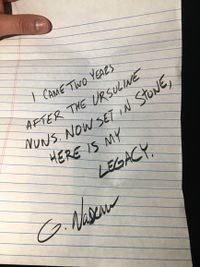 I CAME TWO YEARS
AFTER THE URSULINE
NUNS. NOW SET IN STONE,
HERE IS MY
LEGACY.
G.